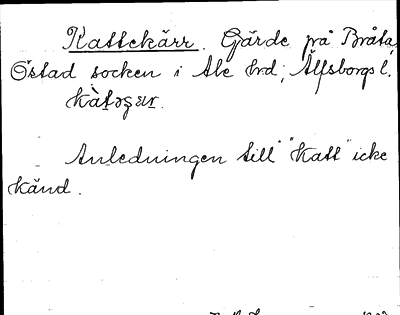 Kattekärr. Gärde på Bråta,
Östad socken i Ale hrd, Älfsborgs l.
Anledningen till "Katt" icke
känd.